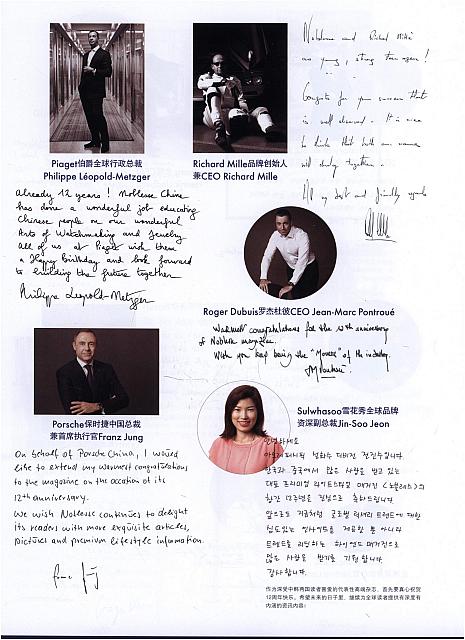 Piaget伯爵全球行政总裁
Philippe Léopold-Metzger
Already 12 years! Noblesse China
has done a wonderful job educating
Chinese people on our wonderful
Arts of Watchmaking and Jewelry
All of us at Piaget wish them
a Happy Birthday and look forward
to building the future together
Philippe Léopold-Metzger
Richard Mille品牌创始人
兼CEO Richard Mille
Noblesse and Richard Mille
are young, strong teen agers!
Congrats for your success that
is well deserved. It is nice
to think that both our names
will develop together.
All my best and friendly regards
Roger Dubuis罗杰杜彼CEO Jean-Marc Pontroué
Warmest congratulations for the 12th anniversary
of Noblesse magazine.
Wish you keep being the "Mouse" of the industry.
Porsche保时捷中国总裁
兼首席执行官Franz Jung
On behalf of Porsche China, I would
like to extend my warmest congratulations
to the magazine on the occasion of its
12th anniversary.
We wish Noblesse continues to delight
its readers with more exquisite articles,
pictures and premium lifestyle information.
Sulwhasoo雪花秀全球品牌
资深副总裁Jin-Soo Jeon
안녕하세요
아모레퍼시픽 설화수 디비전 전진수입니다.
한국과 중국에서 많은 사랑을 받고 있는
대표 프리미엄 라이프스타일 매거진 <노블레스>의
창간 12주년을 진심으로 축하드립니다.
앞으로도 지금처럼 글로벌 럭셔리 트렌드에 대한
심도있는 인사이트를 제공할 뿐 아니라
트렌드를 리드하는 하이엔드 매거진으로
많은 사랑을 받기를 기원합니다.
감사합니다.
作为深受中韩两国读者喜爱的代表性高端杂志，首先要真心祝贺
12周年快乐。希望未来的日子里，继续为全球读者提供有深度有
内涵的资讯内容!